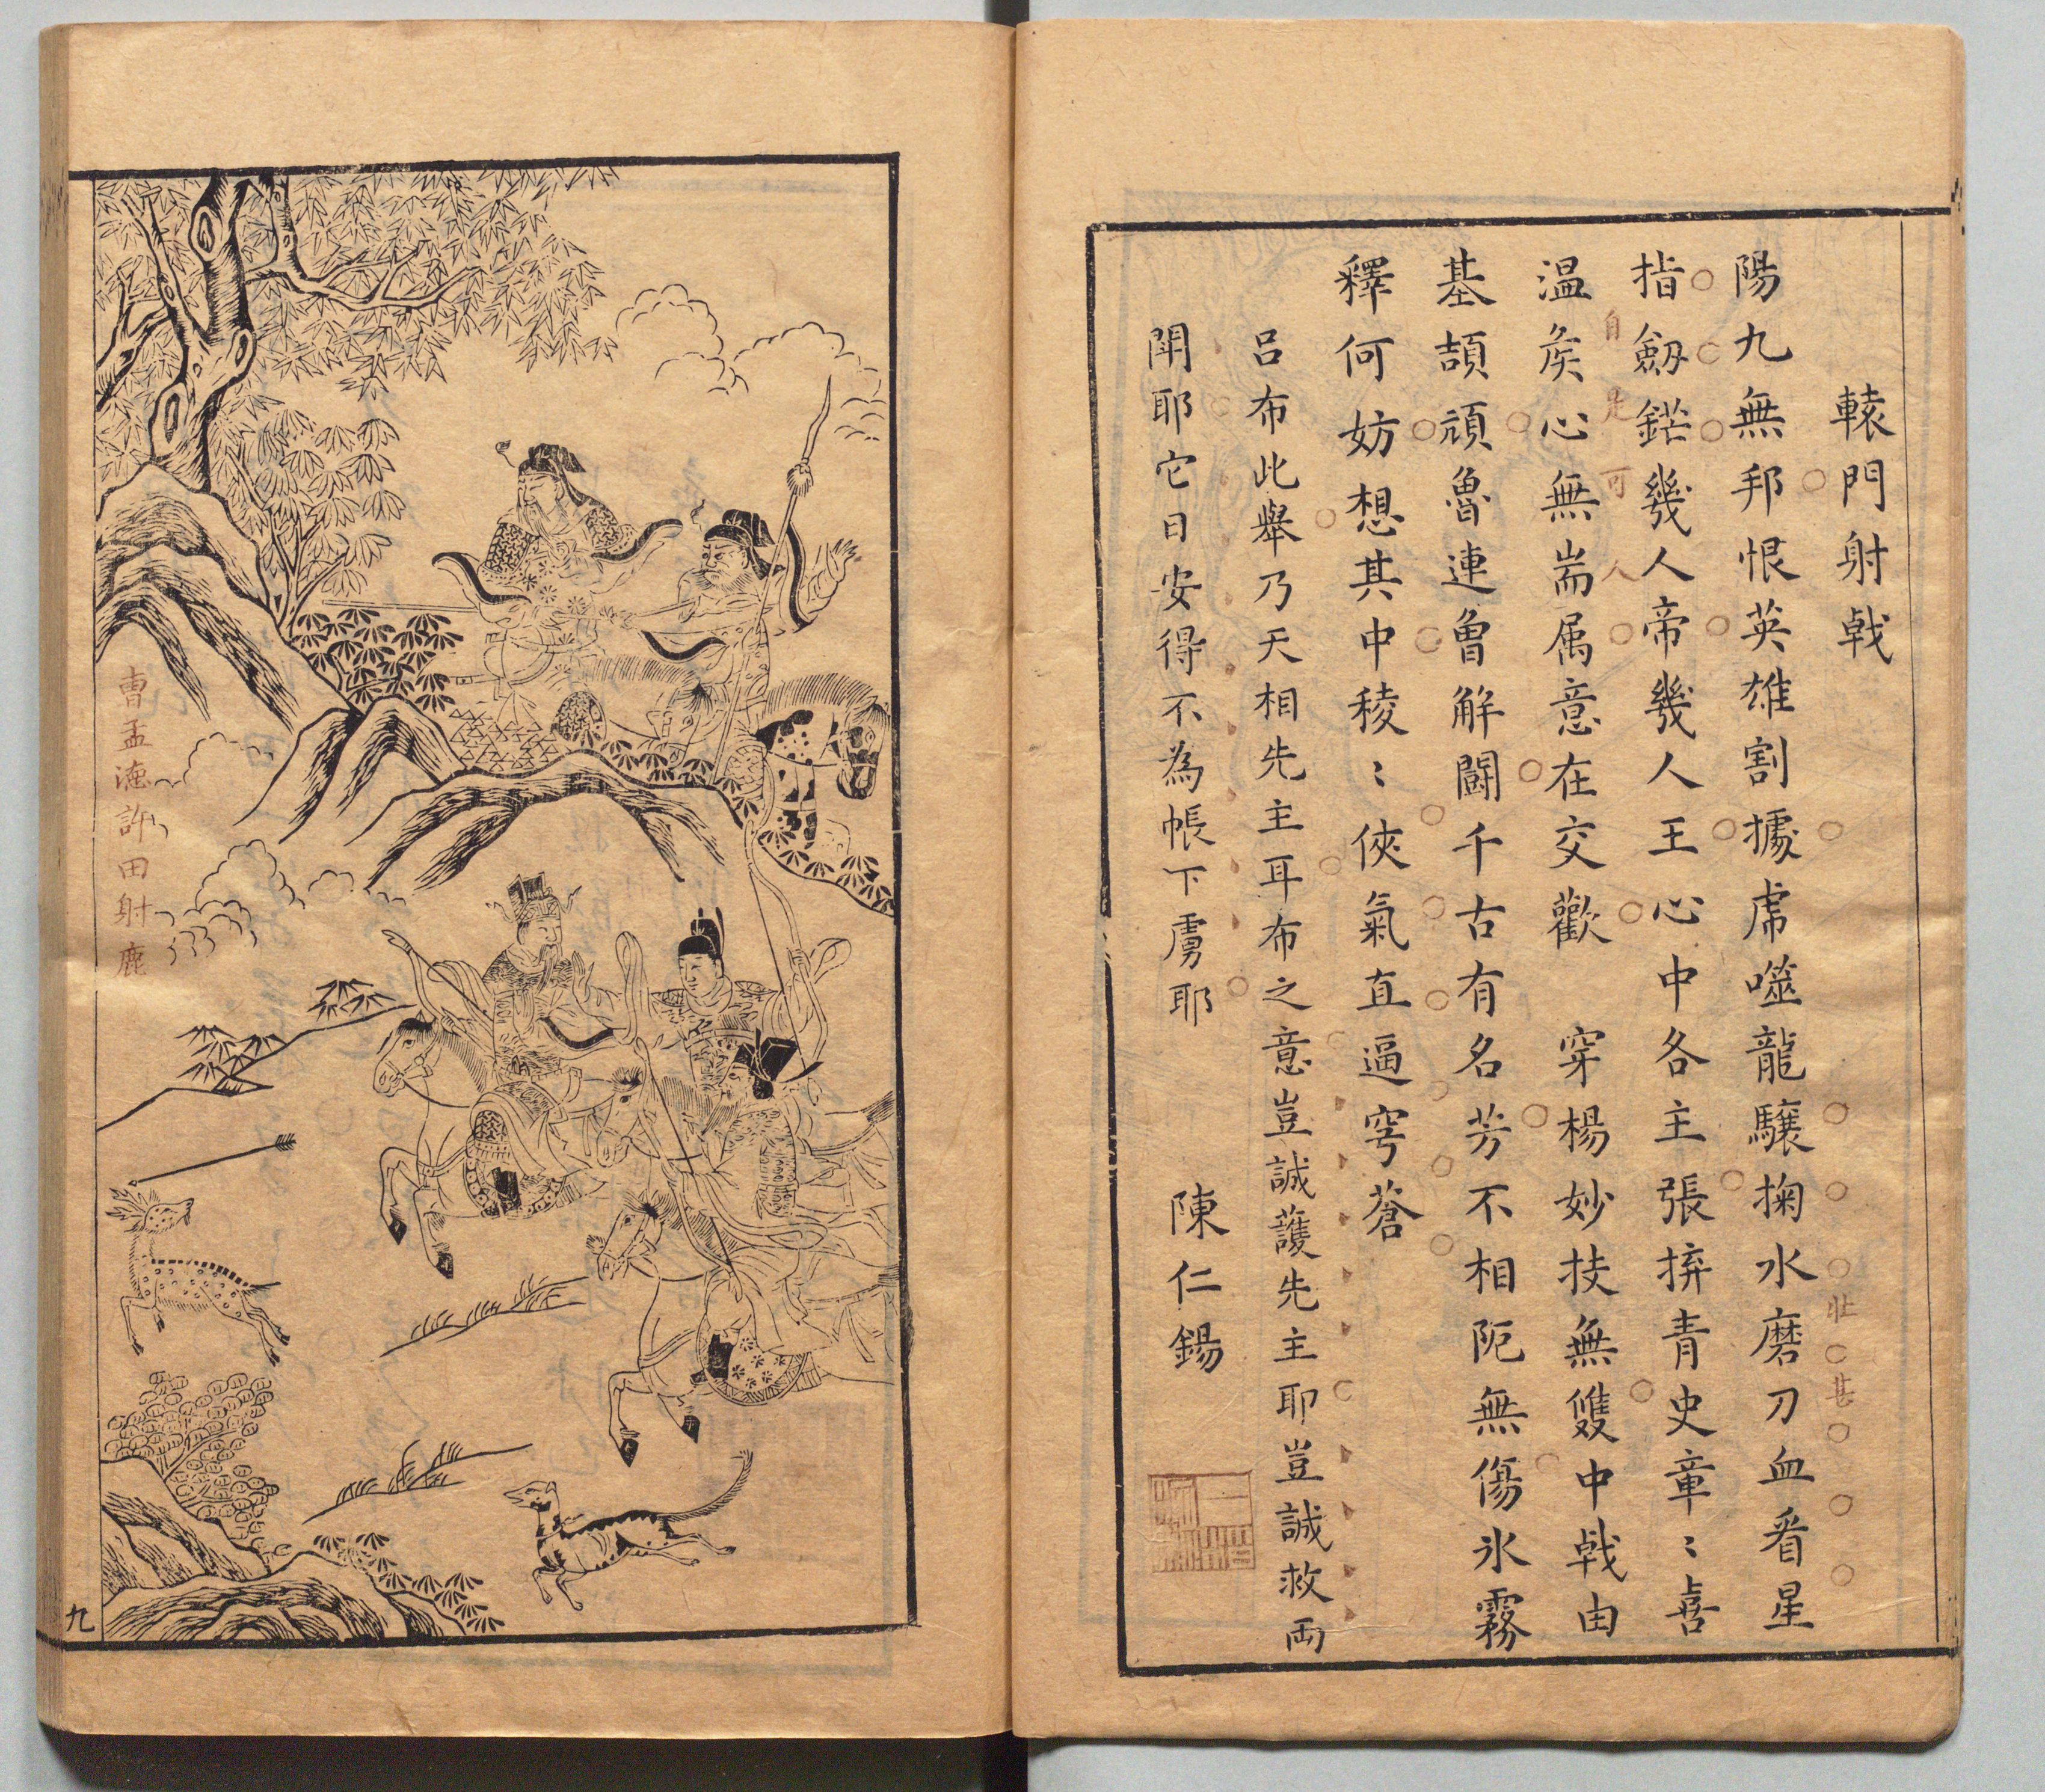 轅門射戟
陽九無邦恨英雄割據虎噬龍驤掬水磨刀血看星
指劔鋩幾人帝幾人王心中各主張擠青史章〻喜
溫矦心無耑属意在交歡 穿楊妙技無雙中戟由
基頡頏魯連曾解鬭千古有名芳不相阨無傷氷霧
釋何妨想其中稜〻俠氣直逼穹蒼
呂布此舉乃天相先主耳布之意豈誠護先主耶豈誠救両
鬪耶它日安得不為帳下虜耶
陳仁錫
自是可人
壯甚
曹孟德許田射鹿
九